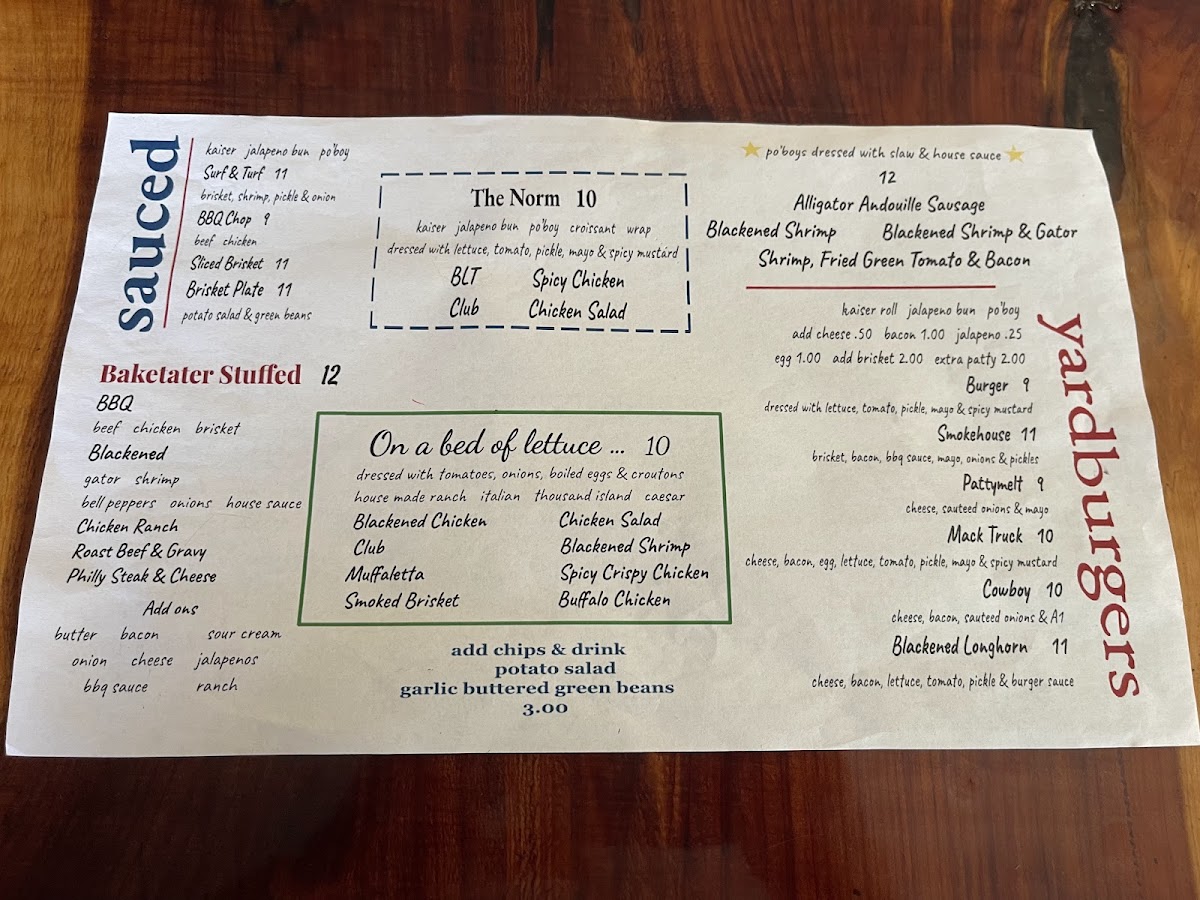 Sauced
kaiser jalapeno bun po'boy
Surf & Turf 11
brisket, shrimp, pickle & onion
BBQ Chop 9
beef chicken
Sliced Brisket 11
Brisket Plate 11
potato salad & green beans
Baketater Stuffed 12
BBQ
beef chicken brisket
Blackened
gator shrimp
bell peppers onions house sauce
Chicken Ranch
Roast Beef & Gravy
Philly Steak & Cheese
Add ons
butter bacon sour cream
onion cheese jalapenos
bbq sauce ranch
The Norm 10
kaiser jalapeno bun po'boy croissant wrap
dressed with lettuce, tomato, pickle, mayo & spicy mustard
BLT Spicy Chicken
Club Chicken Salad
On a bed of lettuce ... 10
dressed with tomatoes, onions, boiled eggs & croutons
house made ranch italian thousand island caesar
Blackened Chicken Chicken Salad
Club Blackened Shrimp
Muffaletta Spicy Crispy Chicken
Smoked Brisket Buffalo Chicken
add chips & drink
potato salad
garlic buttered green beans
3.00
po'boys dressed with slaw & house sauce
12
Alligator Andouille Sausage
Blackened Shrimp Blackened Shrimp & Gator
Shrimp, Fried Green Tomato & Bacon
yardburgers
kaiser roll jalapeno bun po'boy
add cheese .50 bacon 1.00 jalapeno .25
egg 1.00 add brisket 2.00 extra patty 2.00
Burger 9
dressed with lettuce, tomato, pickle, mayo & spicy mustard
Smokehouse 11
brisket, bacon, bbq sauce, mayo, onions & pickles
Pattymelt 9
cheese, sauteed onions & mayo
Mack Truck 10
cheese, bacon, egg, lettuce, tomato, pickle, mayo & spicy mustard
Cowboy 10
cheese, bacon, sauteed onions & A1
Blackened Longhorn 11
cheese, bacon, lettuce, tomato, pickle & burger sauce